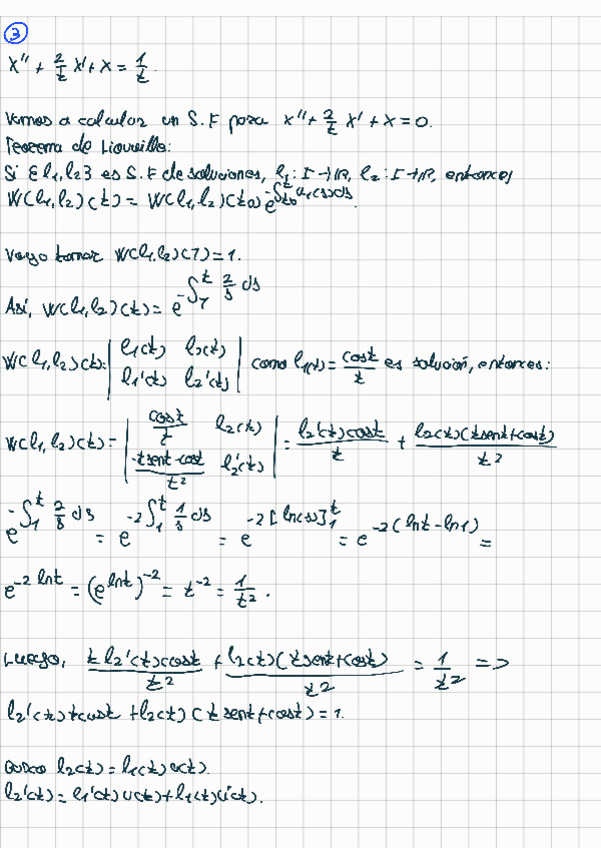 3
x'' + 2/t x' + x = 1/t.
Vamos a calcular un S.F para x'' + 2/t x' + x = 0.
Teorema de Liouville:
Si {l₁, l₂} es S.F de soluciones, l₁: I → ℝ, l₂: I → ℝ, entonces
W(l₁, l₂)(t) = W(l₁, l₂)(t₀) e^{-∫_{t₀}^{t} a₁(s)ds}.
Voy a tomar W(l₁, l₂)(1) = 1.
Así, W(l₁, l₂)(t) = e^{-∫_1^t 2/s ds}
W(l₁, l₂)(t) = | l₁(t) l₂(t) ; l₁'(t) l₂'(t) | como l₁(t) = cost/t es solución, entonces:
W(l₁, l₂)(t) = | cost/t l₂(t) ; (-tsent-cost)/t² l₂'(t) | = l₂'(t)cost/t + l₂(t)(tsent+cost)/t²
e^{-∫_1^t 2/s ds} = e^{-2∫_1^t 1/s ds} = e^{-2[ln(s)]_1^t} = e^{-2(lnt-ln1)} =
e^{-2 lnt} = (e^{lnt})^{-2} = t^{-2} = 1/t².
Luego, t l₂'(t)cost/t² + l₂(t)(tsent+cost)/t² = 1/t² =>
l₂'(t)tcost + l₂(t)(tsent+cost) = 1.
Busco l₂(t) = l₁(t)u(t).
l₂'(t) = l₁'(t)u(t) + l₁(t)u'(t).